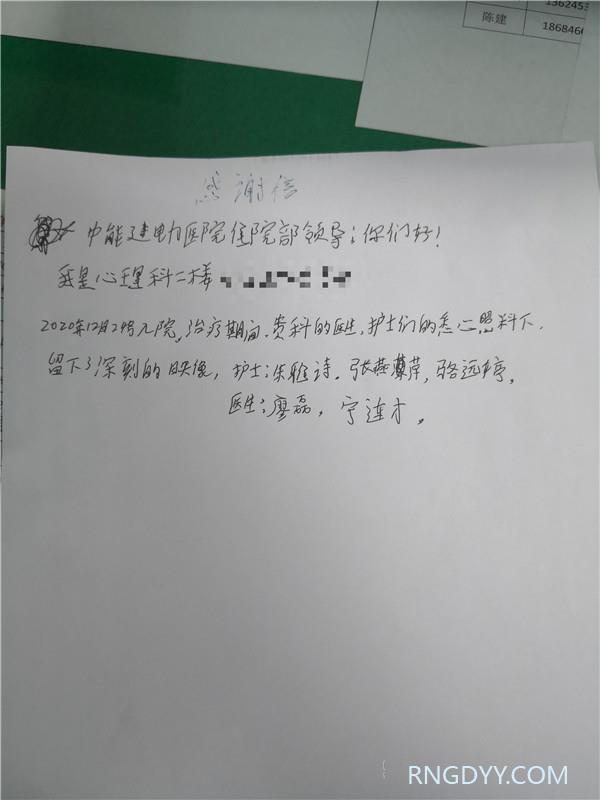 1362453
陈建
186846
感谢信
中能建电力医院住院部领导：你们好！
我是心理科二楼
2020年12月24号入院，治疗期间．贵科的医生，护士们的悉心照料下．
留下了深刻的映像，护士：朱雅诗．张燕萍，骆远婷，
医生：廖磊，宁连才．
RNGDYY.COM